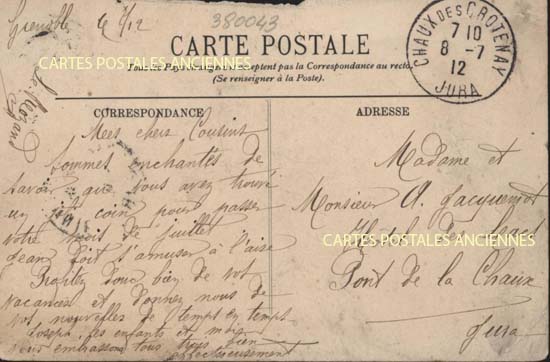 Grenoble le 8/12
380043
CARTE POSTALE
CARTES POSTALES ANCIENNES
Tous les Pays étrangers n'acceptent pas la Correspondance au recto.
(Se renseigner à la Poste).
CHAUX DES CROTENAY
7 10
8 -7
12
JURA
CORRESPONDANCE
Mes chers Cousins
Sommes enchantés de
savoir que vous avez trouvé
un coin pour passer
votre mois de juillet
Jean doit s'amuser à l'aise
Profitez donc bien de vos
vacances et donnez nous de
vos nouvelles de temps en temps
Joseph, les enfants et moi
vous embrassons tous bien
affectueusement
ADRESSE
Madame et
Monsieur A. Jacquemot
Hotel du Lac
CARTES POSTALES ANCIENNES
Pont de la Chaux
Jura